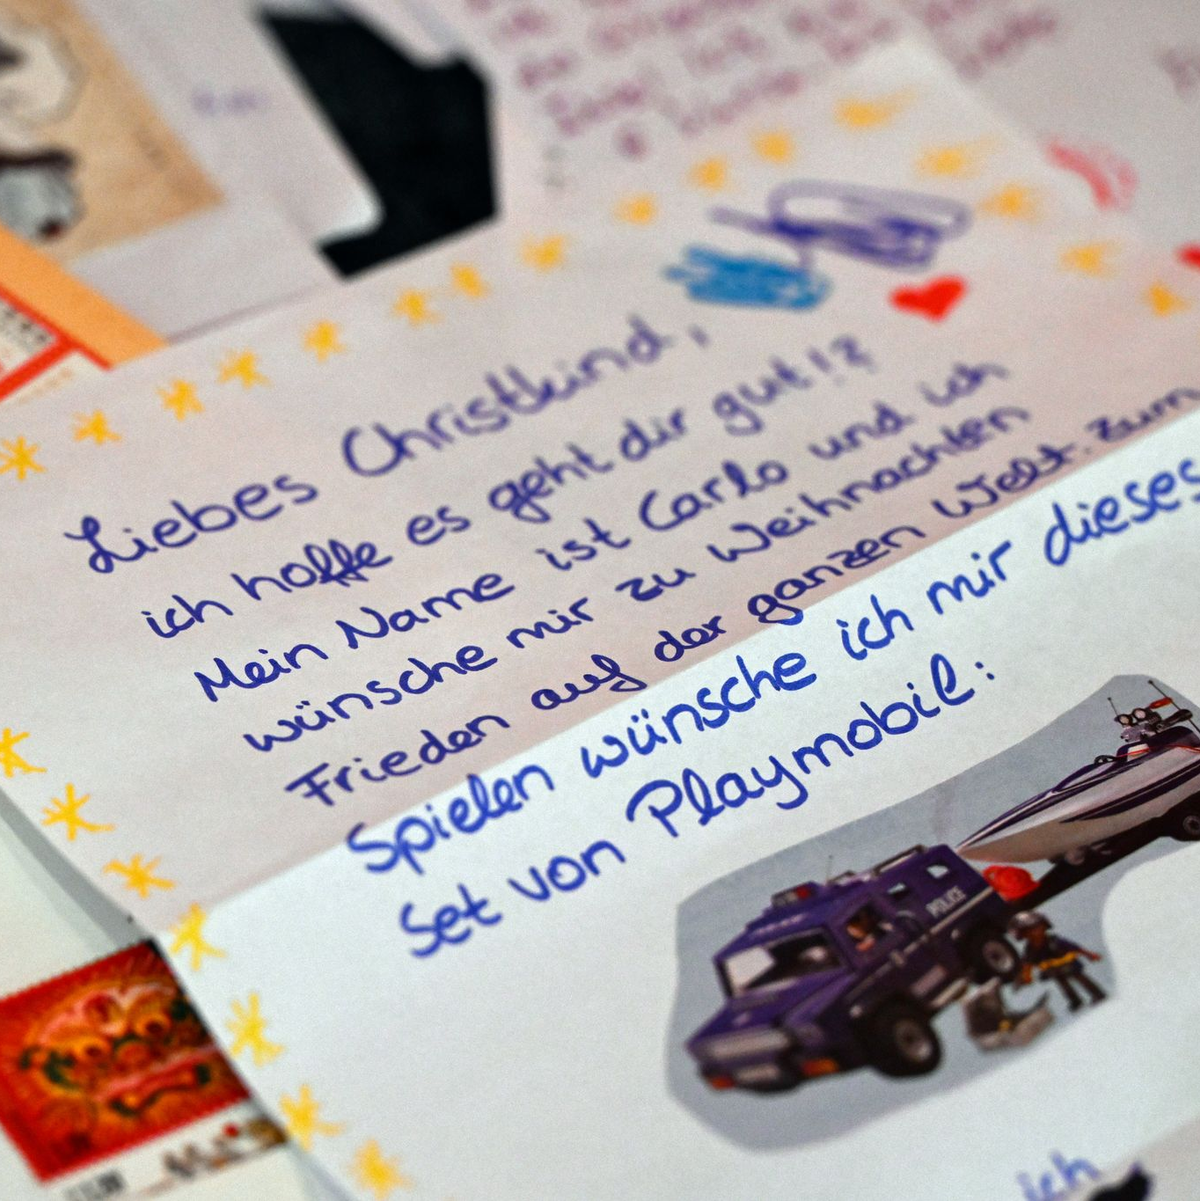 Liebes Christkind,
ich hoffe es geht dir gut!?
Mein Name ist Carlo und ich
wünsche mir zu Weihnachten
Frieden auf der ganzen Welt. Zum
Spielen wünsche ich mir dieses
Set von Playmobil:
POLICE
ich